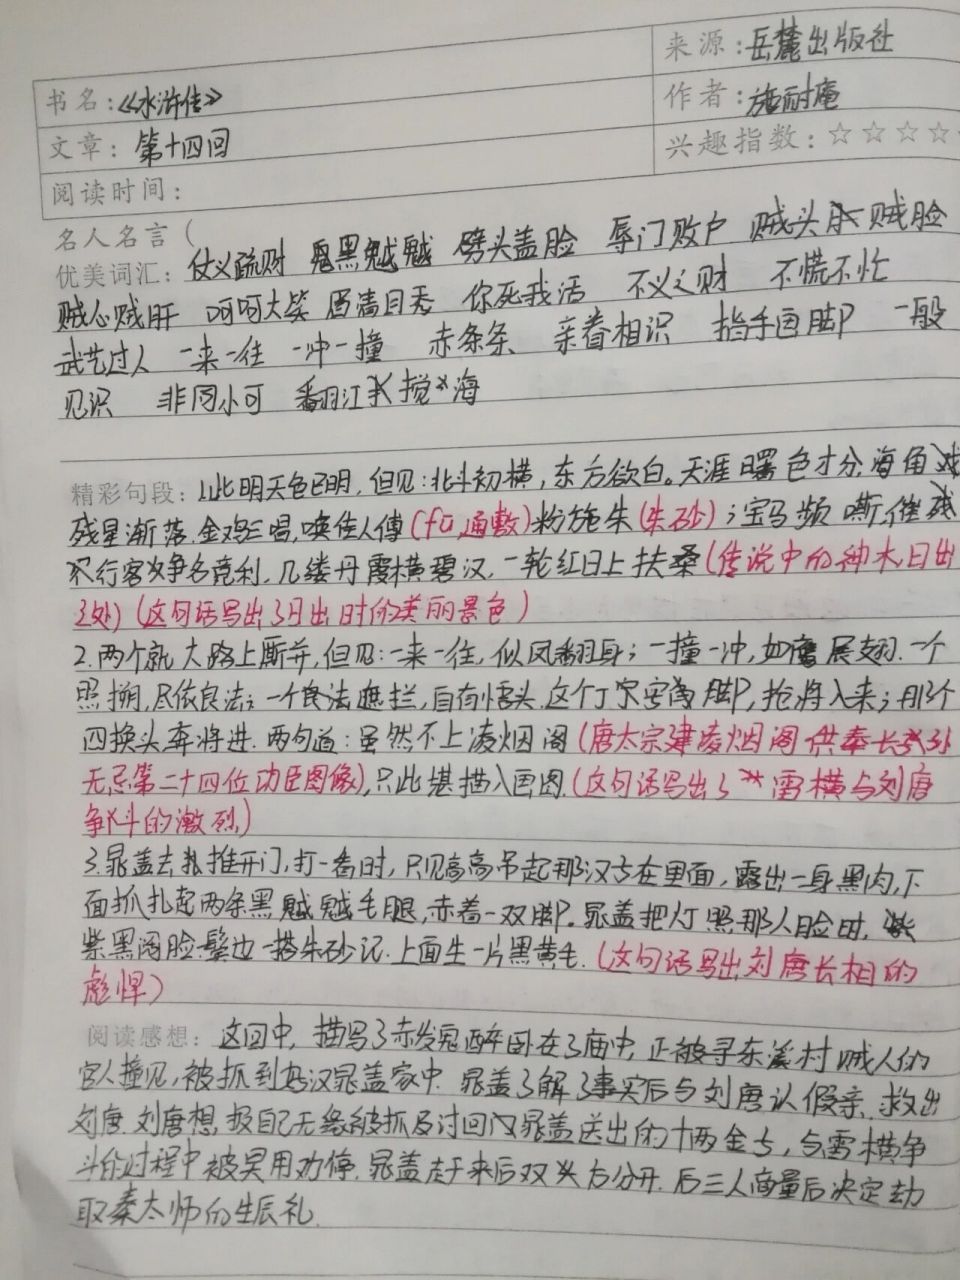 书名：《水浒传》
来源：岳麓出版社
作者：施耐庵
文章：第十四回
兴趣指数：☆☆☆☆
阅读时间：
名人名言（
优美词汇：仗义疏财 黑魆魆 劈头盖脸 辱门败户 贼头贼脸
贼心贼肝 呵呵大笑 眉清目秀 你死我活 不义之财 不慌不忙
武艺过人 一来一往 一冲一撞 赤条条 亲眷相识 指手画脚 一般
见识 非同小可 翻江搅海
精彩句段：1.此明天色已明，但见：北斗初横，东方欲白。天涯曙色才分，海角
残星渐落。金鸡三唱，唤佳人傅（fù，通敷）粉施朱（朱砂）；宝马频嘶，催
行客争名竞利，几缕丹霞横碧汉，一轮红日上扶桑（传说中的神木，日出
之处）（这句话写出了日出时的美丽景色）
2.两个就大路上厮并，但见：一来一往，似凤翻身；一撞一冲，如鹰展翅。一个
照搠，尽依良法；一个遮拦，自有悟头。这个丁字脚，抢将入来；那个
四换头，奔将进。两句道：虽然不上凌烟阁（唐太宗建凌烟阁供奉长孙
无忌第二十四位功臣图像），只此堪描入画图。（这句话写出了雷横与刘唐
争斗的激烈）
3.晁盖去推开门，打一看时，只见高高吊起那汉子在里面，露出一身黑肉，下
面抓扎起两条黑魆魆毛腿，赤着一双脚。晁盖把灯照那人脸时，
紫黑阔脸，鬓边一搭朱砂记，上面生一片黑黄毛。（这句话写出刘唐长相的
彪悍）
阅读感想：这回中，描写了赤发鬼醉卧在了庙中，正被寻东溪村贼人的
官人撞见，被抓到好汉晁盖家中。晁盖了解了事实后与刘唐认假亲，救出
刘唐。刘唐想报自己无缘被抓及讨回晁盖送出的十两金子，与雷横争
斗的过程中被吴用劝停。晁盖赶来后双方分开。后三人商量后决定劫
取秦太师的生辰礼。